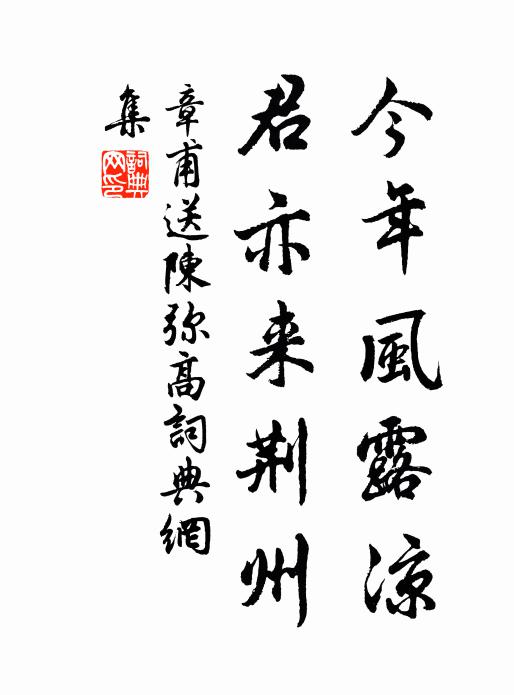 今年風露涼
君亦来荆州
章甫送陳弥高詞典網
集
詞典網印